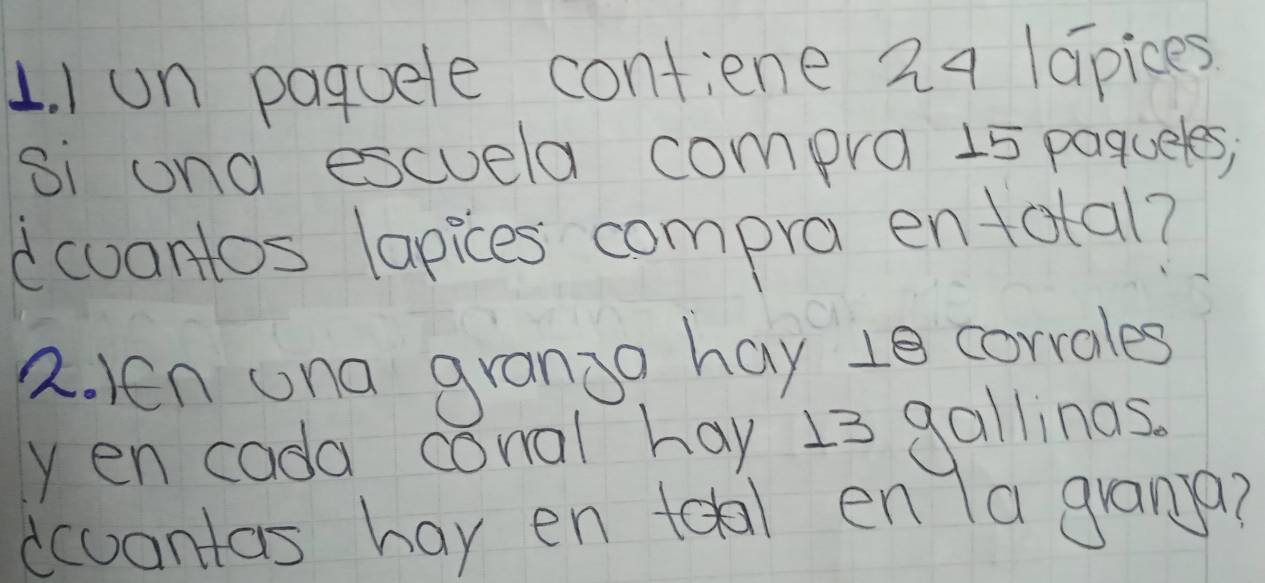 1.) Un paquete contiene 24 lápices.
Si una escuela compra 15 paquetes;
¿cuantos lapices compra en total?
2.) En una granja hay 18 corrales
y en cada corral hay 13 gallinas.
¿cuantas hay en total en la granja?